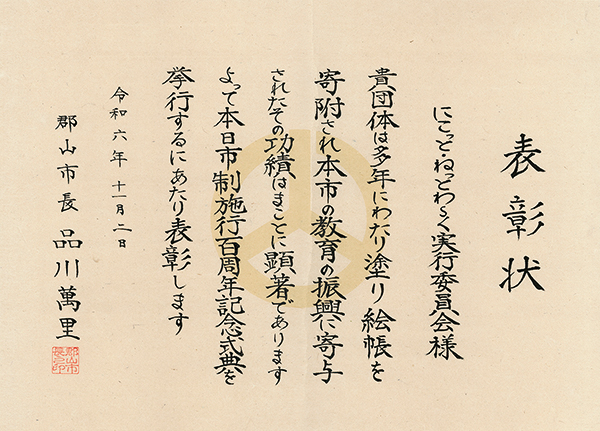 表彰状
にこっとねっとわーく実行委員会様
貴団体は多年にわたり塗り絵帳を
寄附され本市の教育の振興に寄与
されたその功績はまことに顕著であります
よって本日市制施行百周年記念式典を
挙行するにあたり表彰します
令和六年十一月二日
郡山市長 品川萬里
郡山市長之印